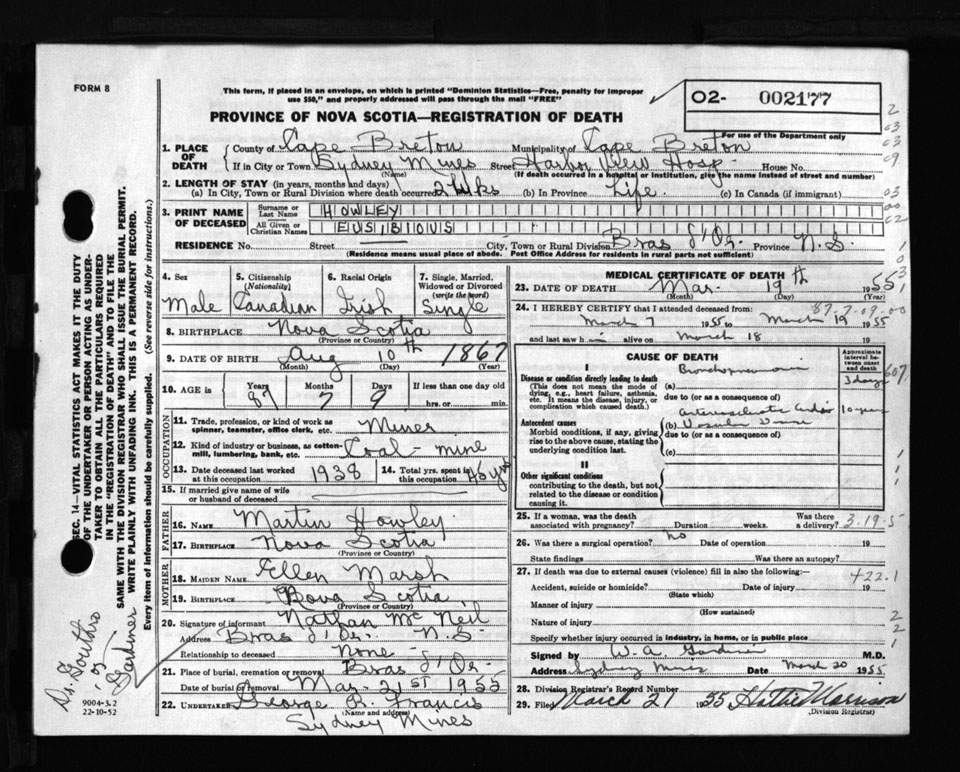 FORM 8
This form, if placed in an envelope, on which is printed "Dominion Statistics—Free, penalty for improper
use $50," and properly addressed will pass through the mail "FREE"
O2- 002177
For use of the Department only
PROVINCE OF NOVA SCOTIA—REGISTRATION OF DEATH
1. PLACE OF DEATH
County of Cape Breton Municipality of Cape Breton
If in City or Town Sydney Mines Street Harbor View Hosp. House No.
(Name) (If death occurred in a hospital or institution, give the name instead of street and number)
2. LENGTH OF STAY (in years, months and days)
(a) In City, Town or Rural Division where death occurred 2 wks (b) In Province Life. (c) In Canada (if immigrant)
3. PRINT NAME OF DECEASED
Surname or Last Name HOWLEY
All Given or Christian Names EUSIBIOUS
RESIDENCE No. Street City, Town or Rural Division Bras d'Or. Province N.S.
(Residence means usual place of abode. Post Office Address for residents in rural parts not sufficient)
4. Sex
Male
5. Citizenship (Nationality)
Canadian
6. Racial Origin
Irish
7. Single, Married, Widowed or Divorced (write the word)
Single
8. BIRTHPLACE Nova Scotia
(Province or Country)
9. DATE OF BIRTH Aug 10th 1867
(Month) (Day) (Year)
10. AGE in Years Months Days If less than one day old
87 7 9 hrs. or min.
OCCUPATION
11. Trade, profession or kind of work as spinner, teamster, office clerk, etc. Miner
12. Kind of industry or business, as cotton-mill, lumbering, bank, etc. Coal-mine
13. Date deceased last worked at this occupation 1938
14. Total yrs. spent in this occupation 46 yrs
15. If married give name of wife or husband of deceased
FATHER
16. NAME Martin Howley
17. BIRTHPLACE Nova Scotia
(Province or Country)
MOTHER
18. MAIDEN NAME Ellen Marsh
19. BIRTHPLACE Nova Scotia
(Province or Country)
20. Signature of informant Nathan McNeil
Address Bras d'Or. N.S.
Relationship to deceased None
21. Place of burial, cremation or removal Bras d'Or
Date of burial or removal Mar. 21st 1955
22. UNDERTAKER George B. Francis
(Name and address)
Sydney Mines
MEDICAL CERTIFICATE OF DEATH
23. DATE OF DEATH Mar. 19th 1955
(Month) (Day) (Year)
24. I HEREBY CERTIFY that I attended deceased from:
87-7-09-00
March 7 1955 to March 19 1955
and last saw him alive on March 18 19
CAUSE OF DEATH
Approximate interval between onset and death
I
Disease or condition directly leading to death
(This does not mean the mode of dying, e.g., heart failure, asthenia, etc. It means the disease, injury, or complication which caused death.)
(a) Bronchopneumonia 3 days
due to (or as a consequence of)
Antecedent causes
Morbid conditions, if any, giving rise to the above cause, stating the underlying condition last.
(b) Arteriosclerotic Cardio Vascular 10 years
due to (or as a consequence of)
(c)
II
Other significant conditions contributing to the death, but not related to the disease or condition causing it.
25. If a woman, was the death associated with pregnancy? Duration weeks. Was there a delivery?
3-19-5
26. Was there a surgical operation? no Date of operation 19
State findings Was there an autopsy?
27. If death was due to external causes (violence) fill in also the following:—
422.1
Accident, suicide or homicide? Date of injury 19
(State which)
Manner of injury
(How sustained)
Nature of injury
Specify whether injury occurred in industry, in home, or in public place
Signed by W. A. Gardiner M.D.
Address Sydney Mines Date March 20 1955
28. Division Registrar's Record Number
29. Filed March 21 1955 Hattie Morrison
(Division Registrar)
SEC. 14—VITAL STATISTICS ACT MAKES IT THE DUTY
OF THE UNDERTAKER OR PERSON ACTING AS UNDER-
TAKER TO OBTAIN ALL THE PARTICULARS REQUIRED
IN THE "REGISTRATION OF DEATH" AND TO FILE THE
SAME WITH THE DIVISION REGISTRAR WHO SHALL ISSUE THE BURIAL PERMIT.
WRITE PLAINLY WITH UNFADING INK. THIS IS A PERMANENT RECORD.
Every item of information should be carefully supplied. (See reverse side for instructions.)
Dr. Gouthro
or
Gardiner
9004-3.2
22-10-52